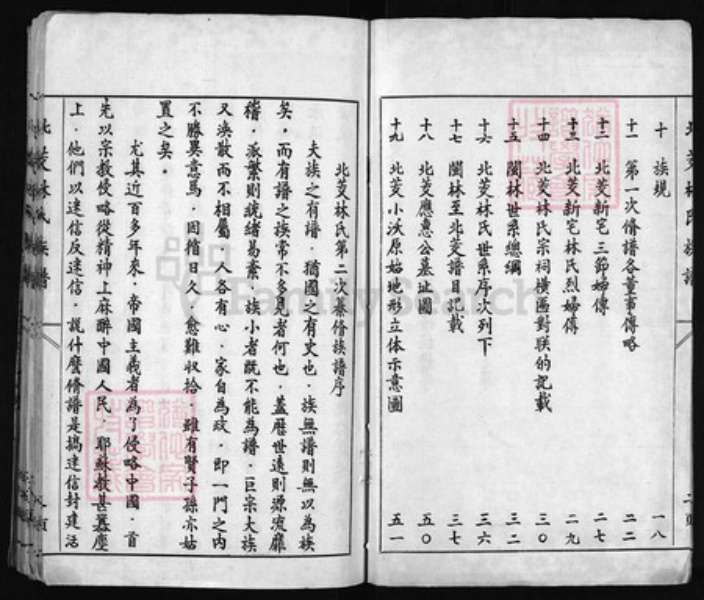 十　族規　一八
十一　第一次脩譜各董事傳略　二二
十二　北茭新宅三節婦傳　二七
十三　北茭新宅林氏烈婦傳　二九
十四　北茭林氏宗祠橫匾對联的記載　三〇
十五　閩林世系總綱　三二
十六　北茭林氏世系序次列下　三六
十七　閩林至北茭譜目記載　三七
十八　北茭應惠公墓址圖　五〇
十九　北茭小沃原始地形立体示意圖　五一
北茭林氏族譜
北茭林氏第二次纂脩族譜序
夫族之有譜．猶國之有史也．族無譜則無以為族
矣．而有譜之族常不多見者何也．蓋歷世遠則源流靡
稽．派繁則統緒易紊．族小者既不能為譜．巨宗大族
又渙散而不相屬．人各有心．家自為政．即一門之内
不勝異意焉．因循日久．愈難収拾．雖有賢子孫亦姑
置之矣．
尤其近百多年來．帝國主義者為了侵略中國．首
先以宗教侵略從精神上麻醉中國人民．耶穌教甚囂塵
上．他們以迷信反迷信．說什麼脩譜是搞迷信封建活
北茭林氏族譜
FamilySearch